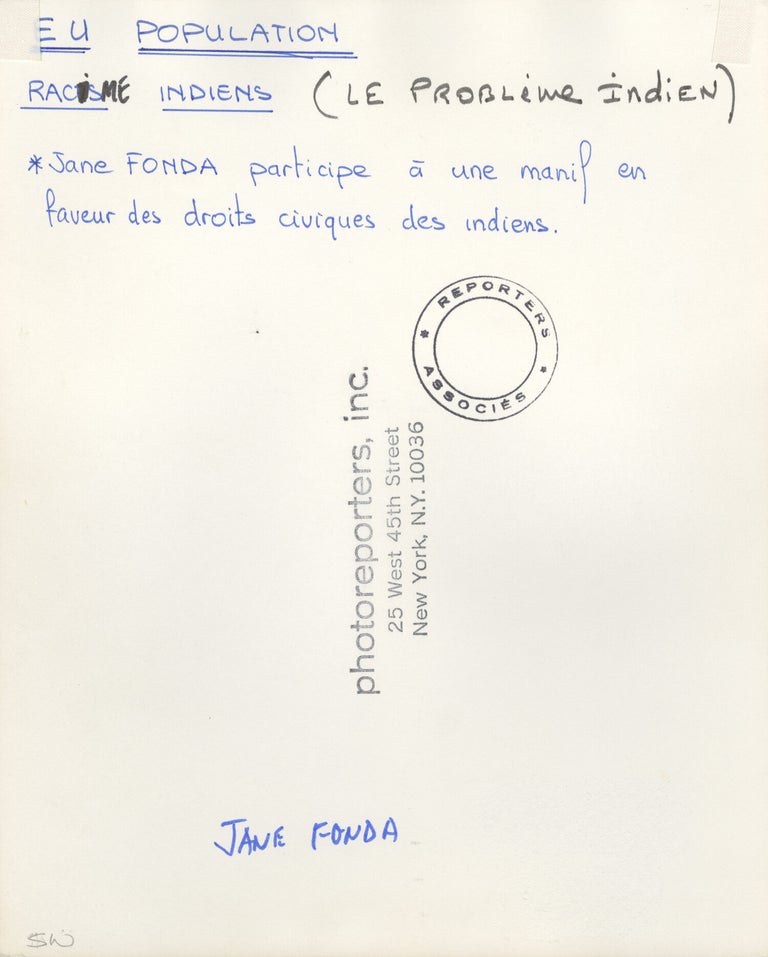 EU POPULATION
RACISME INDIENS (LE PROBLème IndiEN)
*Jane FONDA participe à une manif en
faveur des droits civiques des indiens.
* REPORTERS * ASSOCIÉS
photoreporters, inc.
25 West 45th Street
New York, N.Y. 10036
JANE FONDA
SW